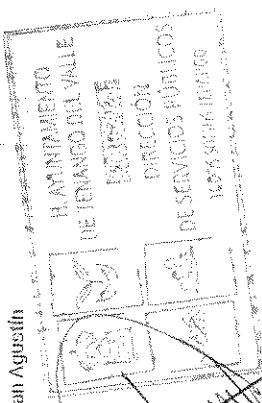 an Agustín
H. AYUNTAMIENTO
DE TENANGO DEL VALLE
DIRECCIÓN
DE SERVICIOS PÚBLICOS